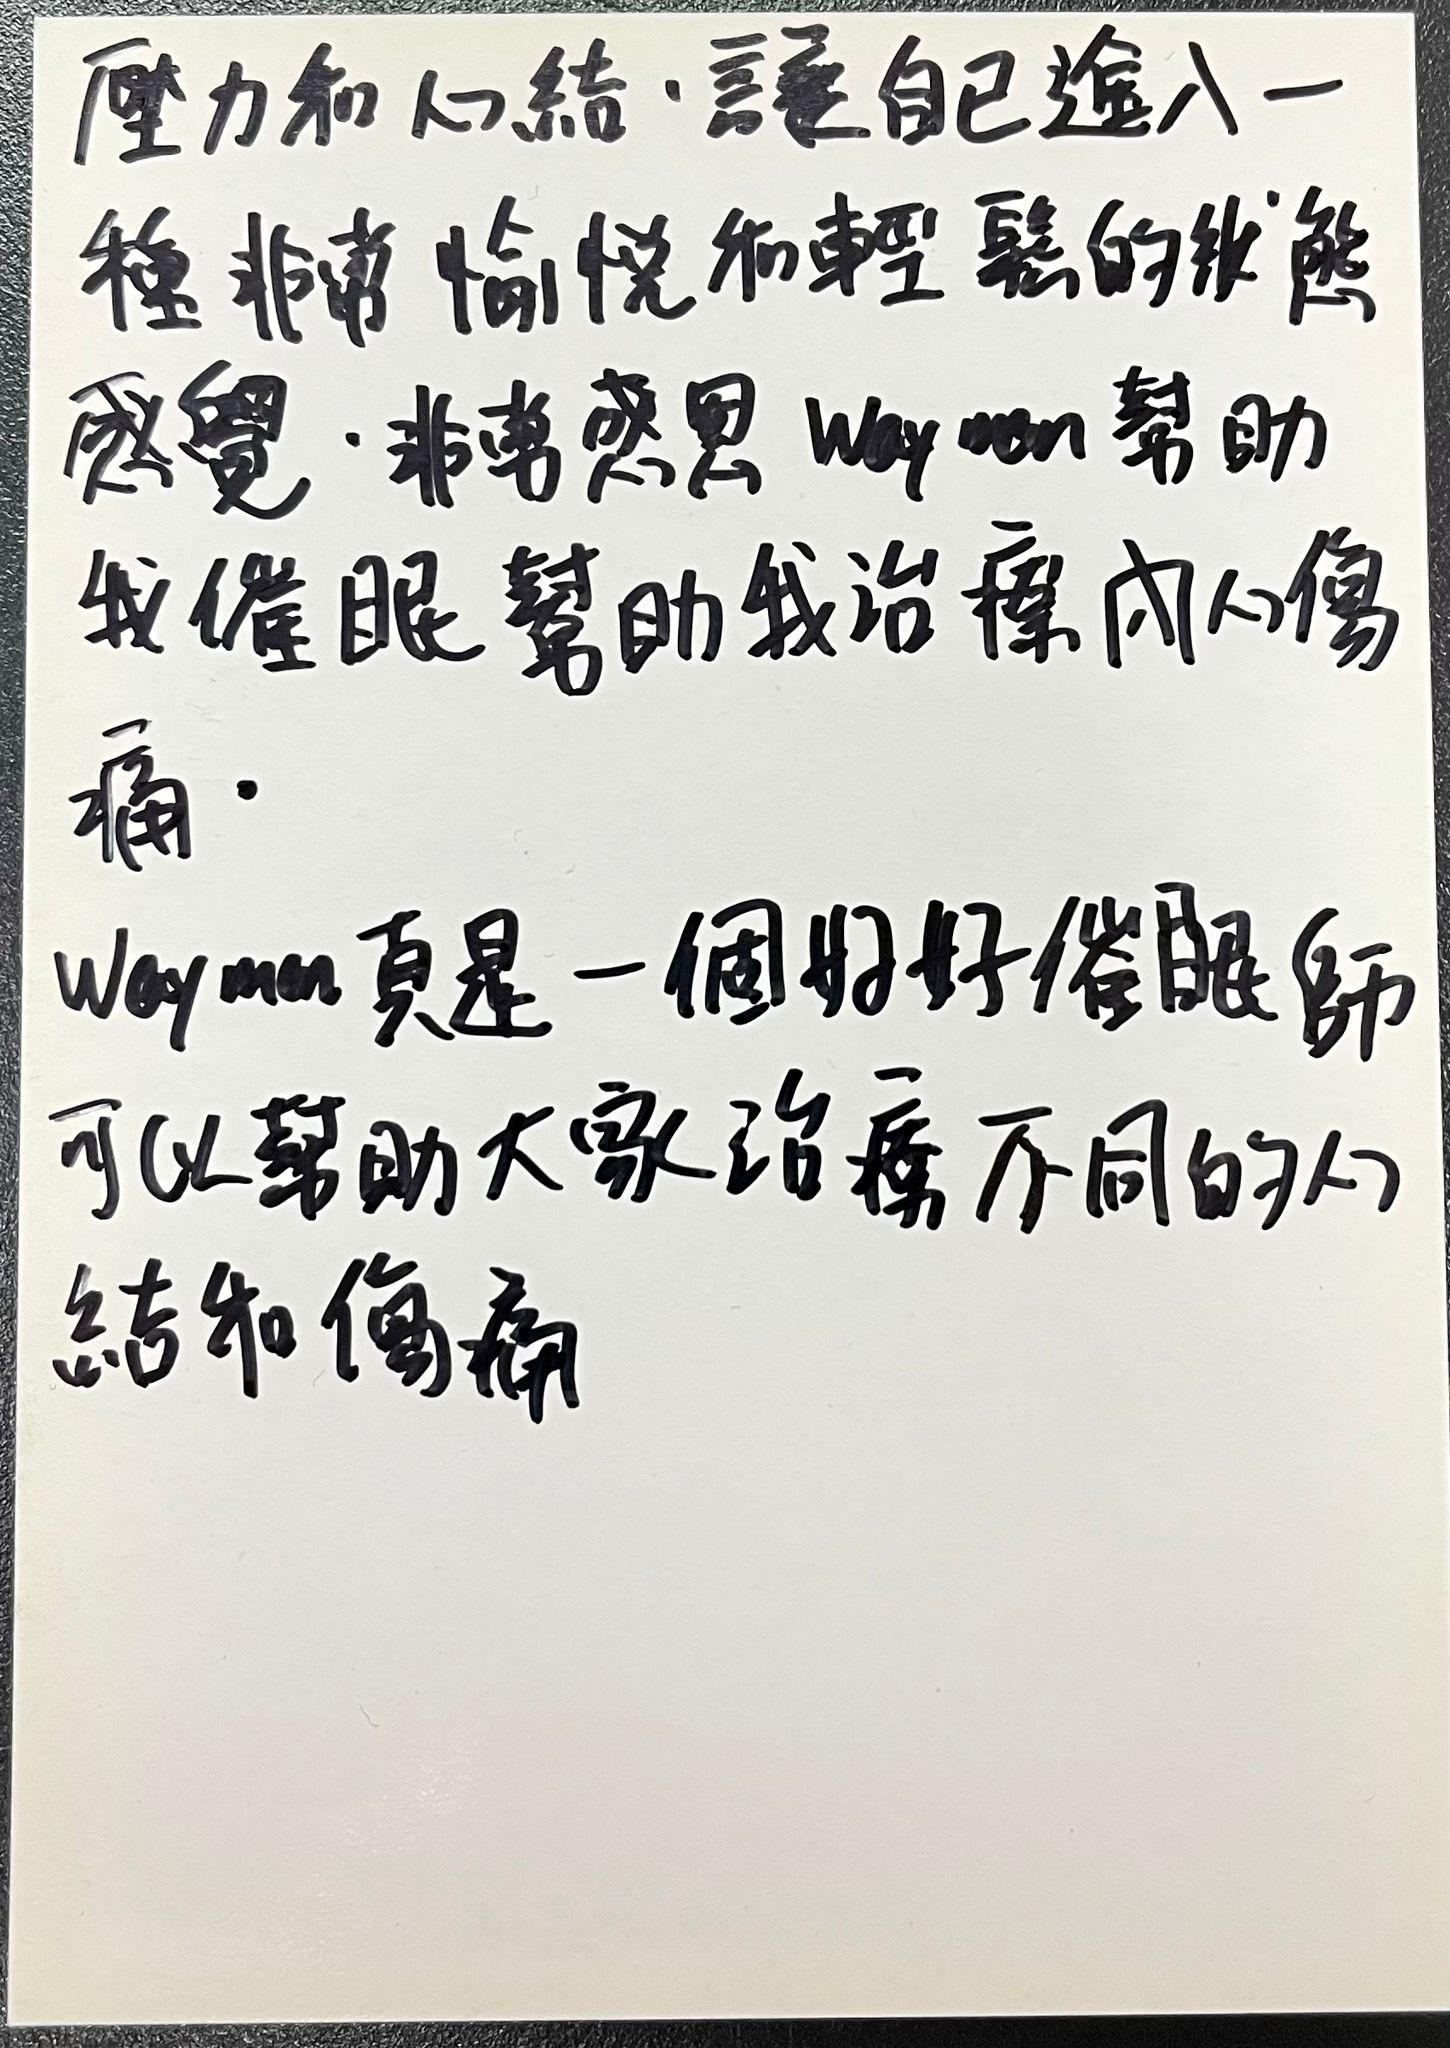 壓力和心結．讓自己進入一
種非常愉悅和輕鬆的狀態
感覺．非常感恩 Waymen 幫助
我催眠幫助我治療內心傷
痛．
Waymen 真是一個好好催眠師
可以幫助大家治療不同的心
結和傷痛